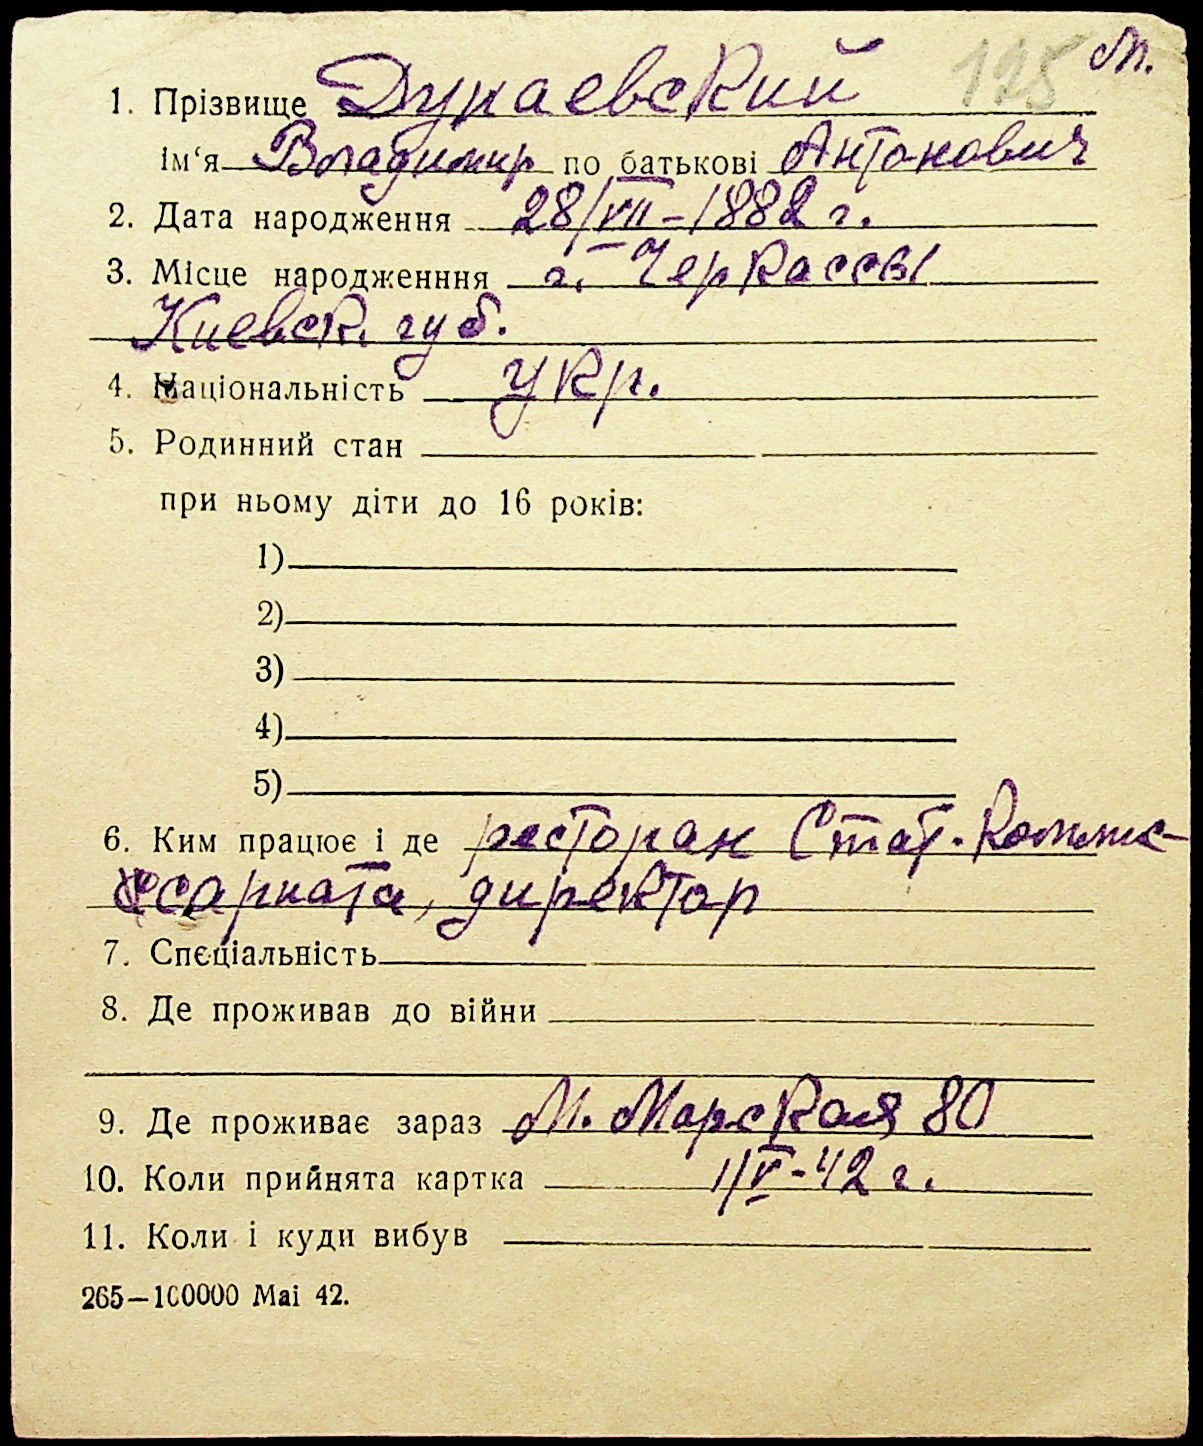 125 М.
1. Прізвище Дунаевский
ім‘я Владимир по батькові Антонович
2. Дата народження 28/VII-1882 г.
3. Місце народженння г. Черкассы
Киевск. губ.
4. Національність укр.
5. Родинний стан
при ньому діти до 16 років:
1)
2)
3)
4)
5)
6. Ким працює і де ресторан Стат. Комис-
сариата, директор
7. Спєціальність
8. Де проживав до війни
9. Де проживає зараз М. Морская 80
10. Коли прийнята картка 1/V-42 г.
11. Коли і куди вибув
265—100000 Маі 42.